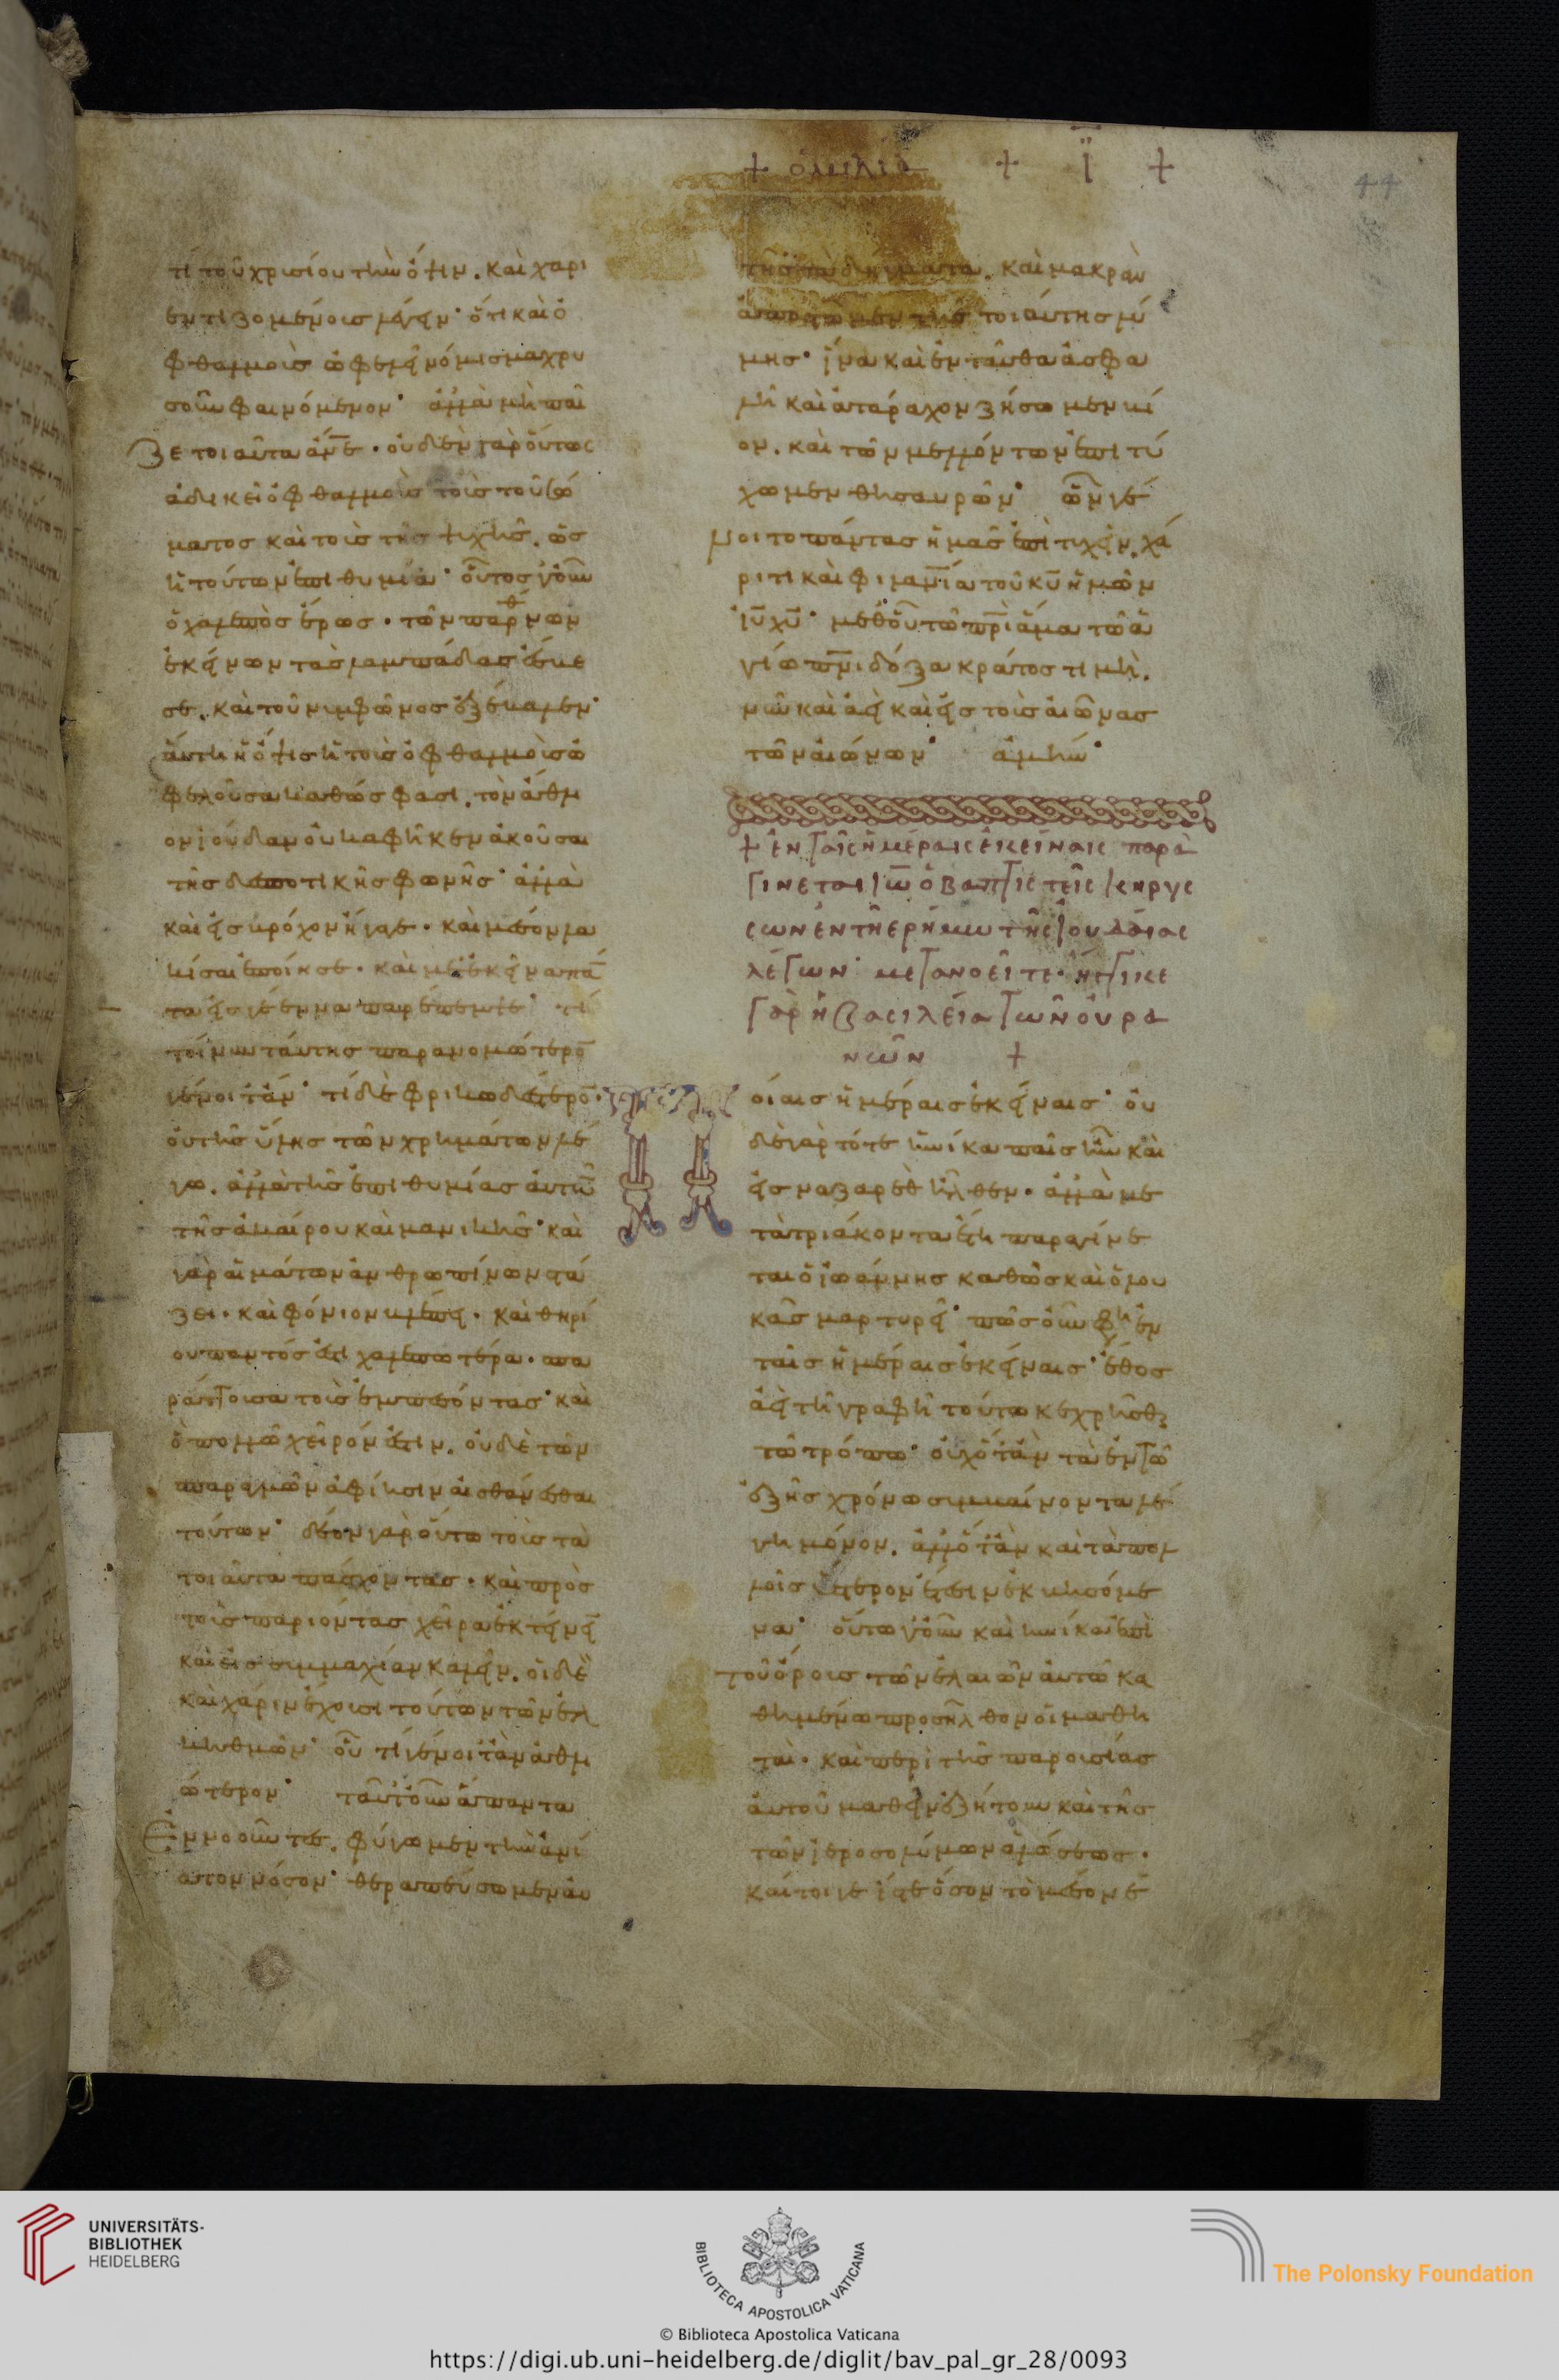 + ὁμιλία + ϊ +
44
τί τοῦ χρυσίου τὴν ὄψιν. καὶ χαρι
εντιζομένοις λέγειν· ὅτι καὶ ὀ
φθαλμοὺς ὠφελεῖ νόμισμα χρυ
σοῦν φαινόμενον· ἀλλὰ μὴ παῖ
ζε τοιαῦτα ἄνε· οὐδὲν γὰρ οὕτως
ἀδικεῖ ὀφθαλμοὺς τοὺς τοῦ σώ
ματος καὶ τοὺς τῆς ψυχῆς. ὡς
ἡ τούτων ἐπιθυμία· οὗτος γοῦν
ὁ χαλεπὸς ἔρως· τῶν παρθένων
ἐκείνων τὰς λαμπάδας ἔσβε
σε. καὶ τοῦ νυμφῶνος ἐξέβαλεν·
αὕτη ἡ ὄψις ἡ τοὺς ὀφθαλμοὺς ὠ
φελοῦσα καθὼς φασι. τὸν ἄθλι
ον ἰούδαν οὐκ ἀφῆκεν ἀκοῦσαι
τῆς δεσποτικῆς φωνῆς· ἀλλὰ
καὶ εἰς βρόχον ἤγαγε· καὶ μέσον λα
κῆσαι ἐποίησε· καὶ μετ' ἐκεῖνα πάν
τα εἰς γέενναν παρέπεμψε· τί
τοίνυν ταύτης παρανομώτερον
γένοιτ' ἄν· τί δὲ φρικωδέστερον·
οὐ τῆς ὕλης τῶν χρημάτων λέ
γω. ἀλλὰ τῆς ἐπιθυμίας αὐτῶν
τῆς ἀκαίρου καὶ μανικῆς· καὶ
γὰρ αἱμάτων ἀνθρωπίνων στά
ζει· καὶ φόνιον βλέπει· καὶ θηρί
ου παντός ἐστι χαλεπωτέρα· σπα
ράττουσα τοὺς ἐμπεσόντας· καὶ
ὃ πολλῷ χεῖρόν ἐστιν. οὐδὲ τῶν
σπαραγμῶν ἀφίησιν αἰσθάνεσθαι
τούτων· δέον γὰρ οὕτω τοὺς τὰ
τοιαῦτα πάσχοντας· καὶ πρὸς
τοὺς παριόντας χεῖρα ἐκτείνειν
καὶ εἰς συμμαχίαν καλεῖν. οἱ δὲ
καὶ χάριν ἔχουσι τούτων τῶν ἑλ
κηθμῶν· οὗ τί γένοιτ' ἂν ἀθλι
ώτερον· ταῦτ' οὖν ἅπαντα
ἐννοοῦντες. φύγωμεν τὴν ἀνί
ατον νόσον· θεραπεύσωμεν αὐ
τῆς τὰ δήγματα. καὶ μακρὰν
ἀποστῶμεν τῆς τοιαύτης λύ
μης· ἵνα καὶ ἐνταῦθα ἀσφα
λῆ καὶ ἀτάραχον ζήσωμεν βί
ον. καὶ τῶν μελλόντων ἐπιτύ
χωμεν θησαυρῶν· ὧν γέ
νοιτο πάντας ἡμᾶς ἐπιτυχεῖν. χά
ριτι καὶ φιλανίᾳ τοῦ κυ ἡμῶν
ιυ χυ· μεθ' οὗ τῷ πρι ἅμα τῷ ἁ
γίῳ πνι δόξα κράτος τιμὴ.
νῦν καὶ ἀεὶ καὶ εἰς τοὺς αἰῶνας
τῶν αἰώνων· ἀμήν·
+ ἐν ταῖς ἡμέραις ἐκείναις παρα
γίνεται ιω ὁ βαπτιστεῖς κηρύσ
σων ἐν τῇ ερήμω τῆς ἰουδαίας
λέγων· μετανοεῖτε· ἤγγικε
γὰρ ἡ βασιλεία τῶν οὐρα
νῶν +
Ποίαις ἡμέραις ἐκείναις· οὐ
δὲ γὰρ τότε ἡνίκα παῖς ἦν καὶ
εἰς ναζαρὲθ ἦλθεν· ἀλλὰ με
τὰ τριάκοντα ἔτη παραγίνε
ται ὁ ἰωάννης καθὼς καὶ ὁ λου
κᾶς μαρτυρεῖ· πῶς οὖν φησὶν ἐν
ταῖς ἡμέραις ἐκείναις· ἔθος
ἀεὶ τῇ γραφῇ τούτῳ κεχρῆσθαι
τῷ τρόπῳ· οὐχ ὅταν τὰ ἐν τῷ
ἑξῆς χρόνῳ συμβαίνοντα λέ
γη μόνον. ἀλλ' ὅταν καὶ τὰ πολ
λοῖς ὕστερον ἔτεσιν ἐκβησόμε
να· οὕτω γοῦν καὶ ἡνίκα ἐπὶ
τοῦ ὄρους τῶν ἐλαιῶν αὐτῷ κα
θημένῳ προσῆλθον οἱ μαθη
ταὶ· καὶ περὶ τῆς παρουσίας
αὐτοῦ μαθεῖν ἐζήτουν καὶ τῆς
τῶν ἱεροσολύμων ἁλώσεως·
καίτοι γε ἴστε ὅσον τὸ μέσον ἐ
UNIVERSITÄTS-
BIBLIOTHEK
HEIDELBERG
BIBLIOTECA APOSTOLICA VATICANA
The Polonsky Foundation
© Biblioteca Apostolica Vaticana
https://digi.ub.uni-heidelberg.de/diglit/bav_pal_gr_28/0093